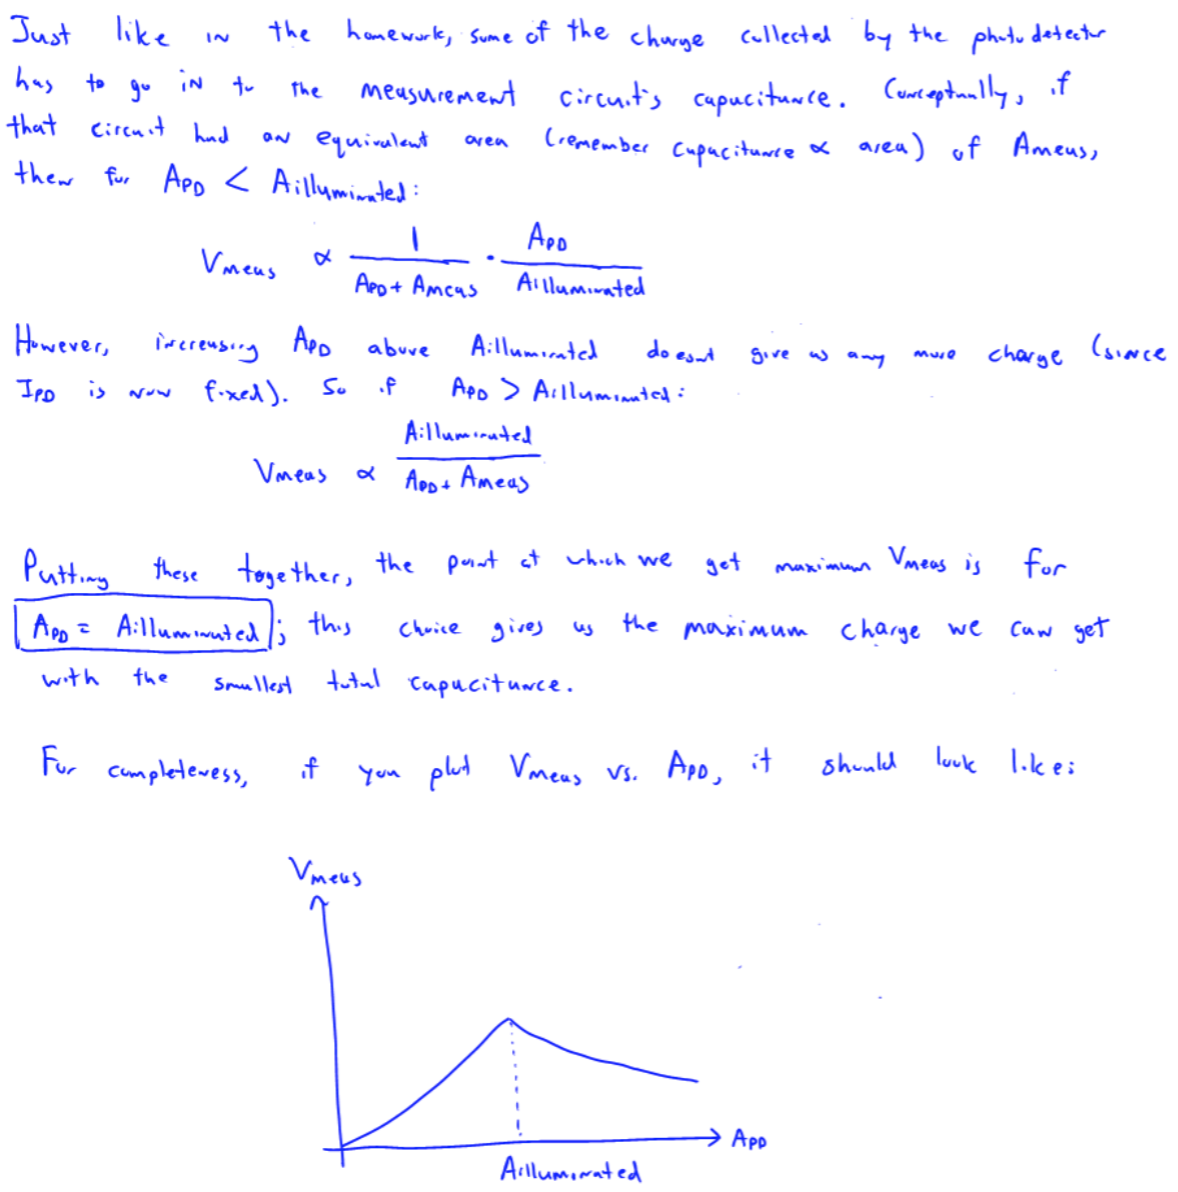 Just like in the homework, some of the charge collected by the photodetector
has to go in to the measurement circuit's capacitance. Conceptually, if
that circuit had an equivalent area (remember capacitance ∝ area) of Ameas,
then for APD < Ailluminated:
Vmeas ∝ 1 / (APD + Ameas) · APD / Ailluminated
However, increasing APD above Ailluminated doesnt give us any more charge (since
IPD is now fixed). So if APD > Ailluminated:
Vmeas ∝ Ailluminated / (APD + Ameas)
Putting these together, the point at which we get maximum Vmeas is for
APD = Ailluminated; this choice gives us the maximum charge we can get
with the smallest total capacitance.
For completeness, if you plot Vmeas vs. APD, it should look like:
Vmeas
APD
Ailluminated